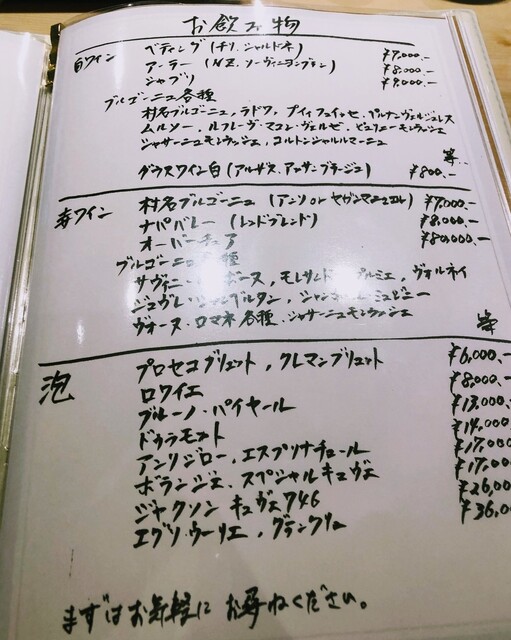 お飲み物
白ワイン
ベディング(チリ、シャルドネ) ¥7,000.-
アーラー(NZ. ソーヴィニヨンブラン) ¥8,000.-
シャブリ ¥9,000.-
ブルゴーニュ各種
村名ブルゴーニュ, ラドワ, プイィフュイッセ・ペルナンヴェルジュレス
ムルソー、ルフレーヴ・マコン・ヴェルゼ・ピュリニーモンラッシェ
シャサーニュモンラッシェ、コルトンシャルルマーニュ
等
グラスワイン白(アルザス、アッサンブラージュ) ¥800.-
赤ワイン
村名ブルゴーニュ ¥7,000.-
ナパバレー(レッドブレンド) ¥8,000.-
オーバーチュア
ブルゴーニュ各種
サヴィニー ボーヌ, モレサンドニ プルミエ, ヴォルネイ
ジュヴレ・シャンベルタン, シャンボール・ミュジニー
ヴォーヌ・ロマネ各種・シャサーニュモンラッシェ
等
泡
プロセコブリュット, クレマンブリュット ¥6,000.-
ロワイエ ¥8,000.-
ブルーノ・パイヤール ¥13,000.-
ドゥラモット ¥14,000
アンリジロー, エスプリナチュール ¥17,000
ボランジェ, スペシャルキュヴェ ¥17,000
ジャクソン キュヴェ746 ¥26,000
エグリ・ウーリエ, グランクリュ ¥36,00
まずはお気軽にお尋ねください。